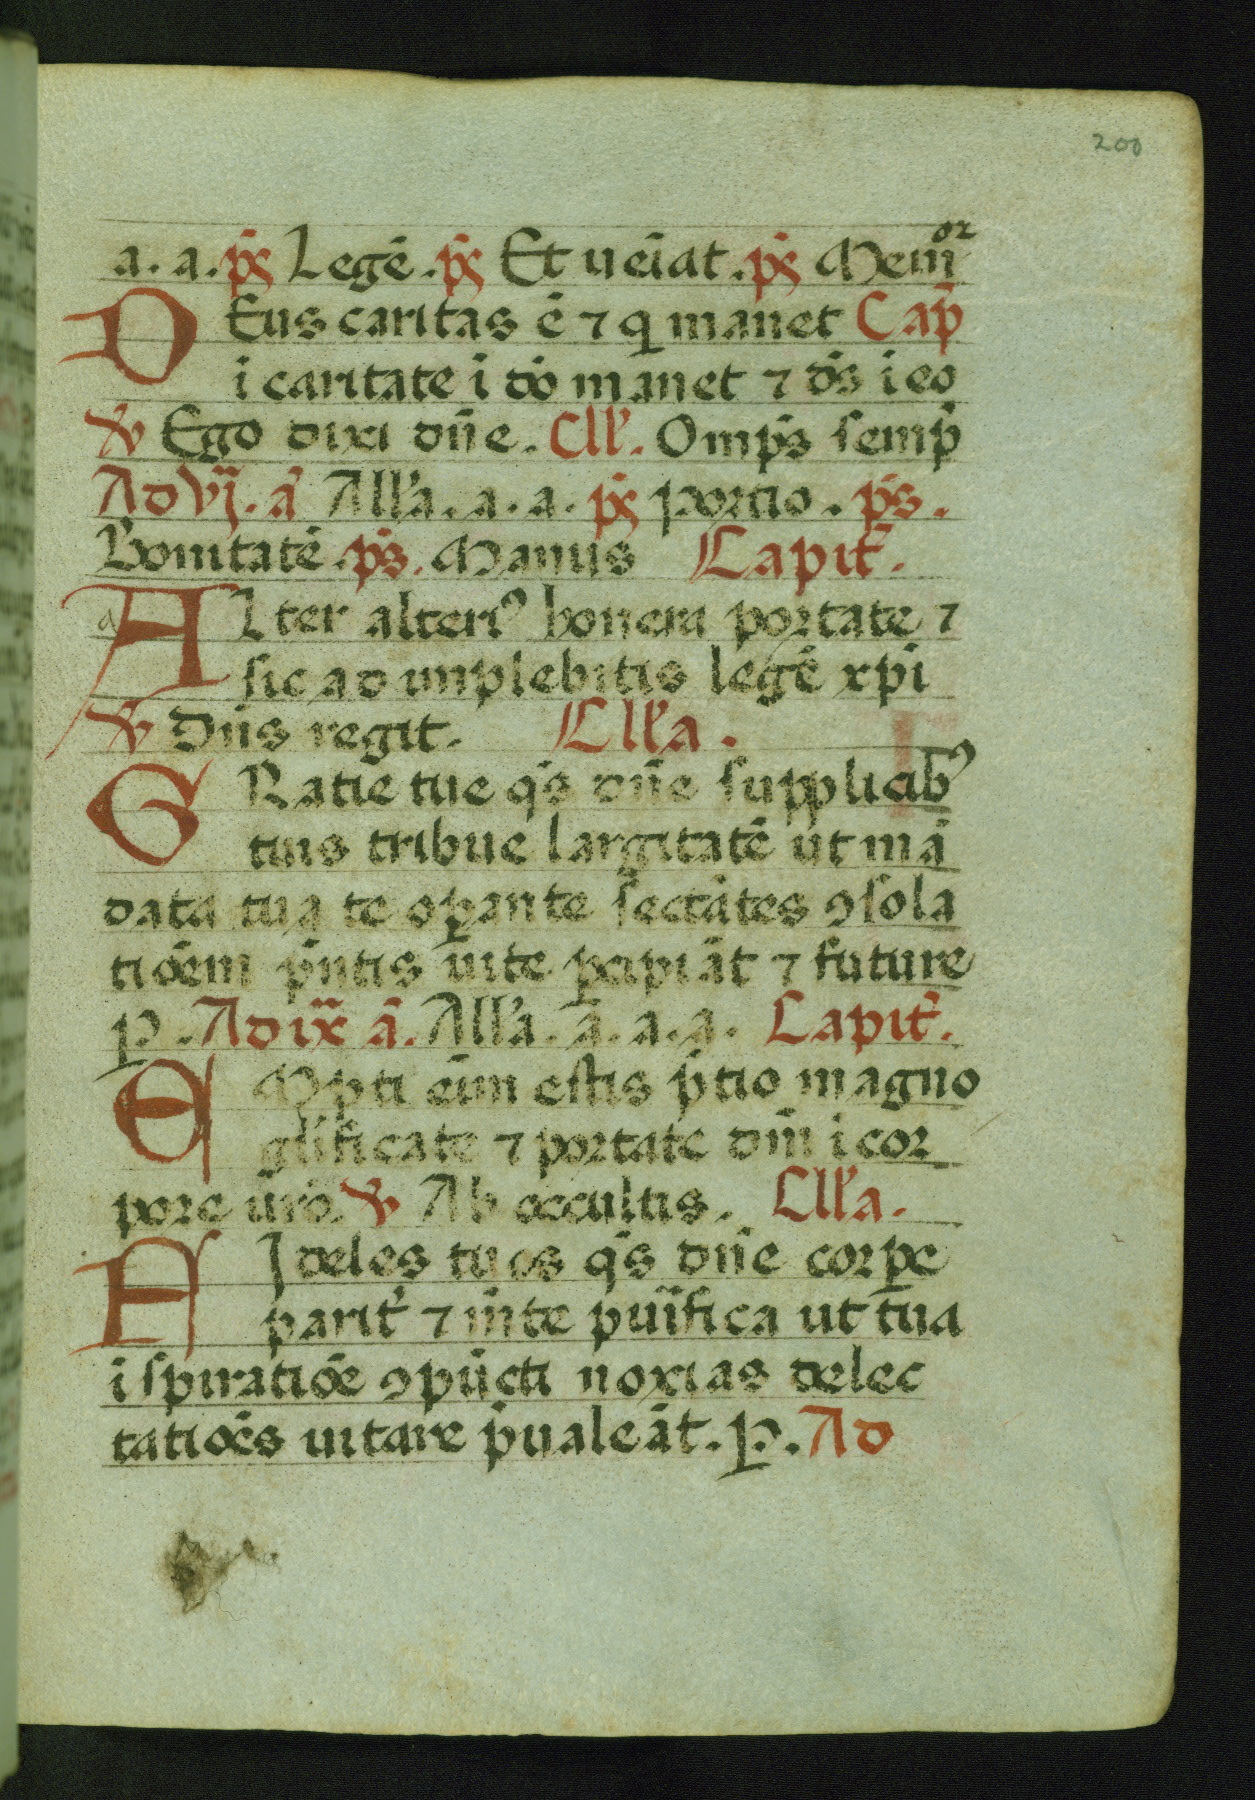 200
a. a. p̄s Legē. p̄s Et ueīat. p̄s Mem̄or
DEus caritas ē ⁊ q̇ manet Cap̄
ī caritate ī dō manet ⁊ d̄s ī eo
℣ Ego dixi dn̄e. Cll'. Omp̄s semp̄
Ad vj. ā All'a. a. a. p̄s portio. p̄s.
Bonitatē. p̄s. Manus Capit̄.
a ALter alteriꝰ honera portate ⁊
sic ad implebitis legē xp̄i
℣ Dn̄s regit. Cll'a.
GRatie tue q̄s dn̄e supplicibꝰ
tuis tribue largitatē ut mā
data tua te oꝑante sectātes ꝯsola
tiōem p̄ntis uite ꝑcipiāt ⁊ future
P. Ad ix ā. All'a. a. a. a. Capit̄.
EMpti eīm estis p̄tio magno
gl̄ificate ⁊ portate dn̄m ī cor
pore ur̄o. ℣ Ab occultis. Cll'a.
FIdeles tuos q̄s dn̄e corꝑe
parit̄ ⁊ m̄te puīfica ut tua
īspiratiōe ꝯpūcti noxias delec
tatiōes uitare p̄ualeāt. P. Ad